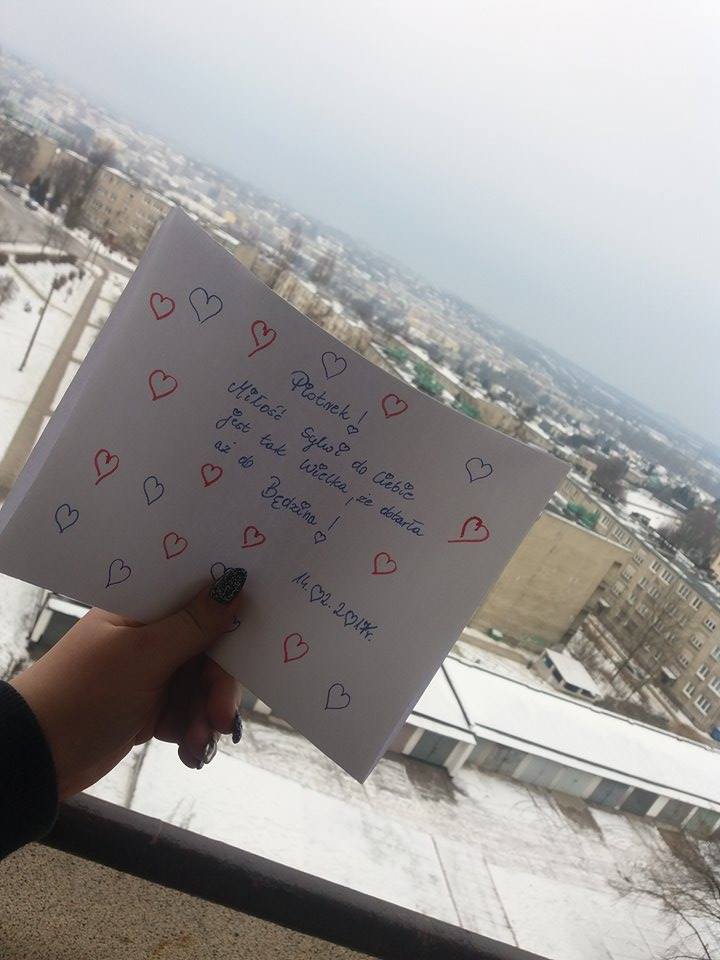 Płotnek!
Miłość Sylwi do Ciebie
jest tak wielka, że dotarła
aż do
Będzina!
14.02.2017r.